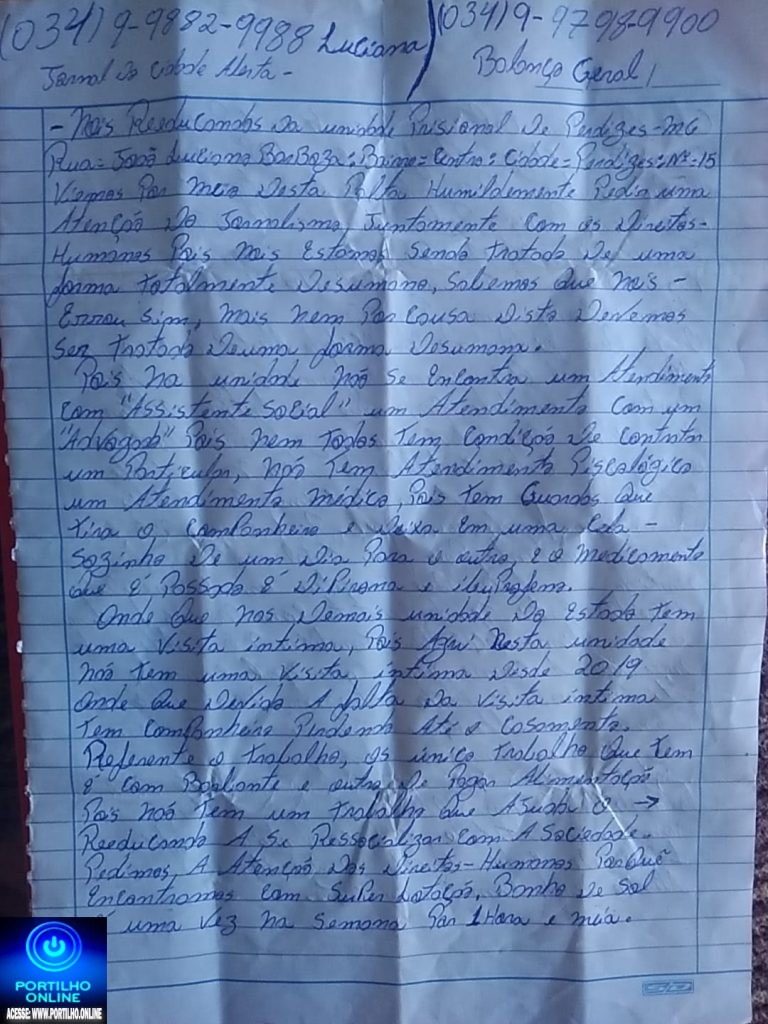 (034)9-9882-9988 Luciana / (034)9-9798-9900
Jornal da Cidade Alerta - Balanço Geral /
- Nois Reeducandos da unidade Prisional De Perdizes-MG
Rua= João Luciano BarBoza: Bairro= Centro: Cidade= Perdizes: Nº-15
Viemos Por meio Desta Falta Humildemente Pedir uma
Atenção Do Jornalismo, Juntamente com os Direitos-
Humanos Pois nois Estamos Sendo tratado De uma
forma totalmente Desumana, Sabemos Que nois -
Errou Sim, mais nem Por Causa Disto Devemos
Ser tratado De uma forma Desumana.
Pois na unidade não se Encontra um Atendimento
com "Assistente Social" um Atendimento com um
"Advogado" Pois nem todos tem Condição De Contratar
um Particular, não tem Atendimento Piscológico
um Atendimento médico, Pois tem Guardas Que
tira o Companheiro e Deixa Em uma Cela -
Sozinho De um Dia Para o outro, e o medicamento
Que É Passado É Dipirona e ibuprofeno.
Onde Que nas Demais unidade Do Estado tem
uma Visita íntima, Pois Aqui Nesta unidade
não tem uma Visita íntima Desde 2019
Onde Que Devido A falta Da Visita íntima
tem Companheiro Perdendo Até o Casamento.
Referente o trabalho, os único trabalho Que tem
É com Barbante e outro De Pagar Alimentação
Pois não tem um trabalho Que Ajuda o →
Reeducando A Se Ressocializar com A Sociedade.
Pedimos, A Atenção Dos Direitos-Humanos PorQuê
Encontramos com Super Lotação, Banho De Sol
É uma vez na Semana Por 1 Hora e meia.
PORTILHO
ONLINE
ACESSE: WWW.PORTILHO.ONLINE